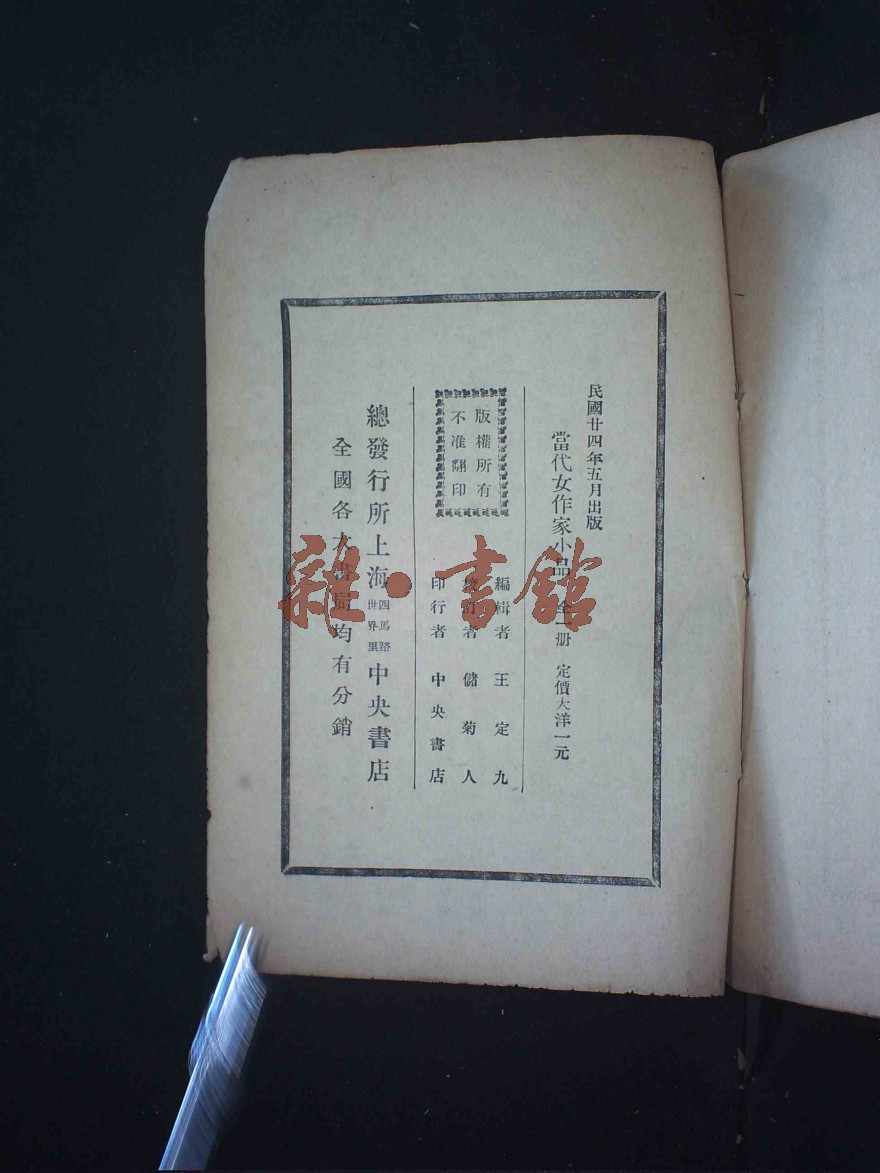 民國廿四年五月出版
當代女作家小品 全一册 定價大洋一元
版權所有
不准翻印
編輯者 王定九
校訂者 儲菊人
印行者 中央書店
總發行所上海四馬路世界里中央書店
全國各大書局均有分銷
雜·書館